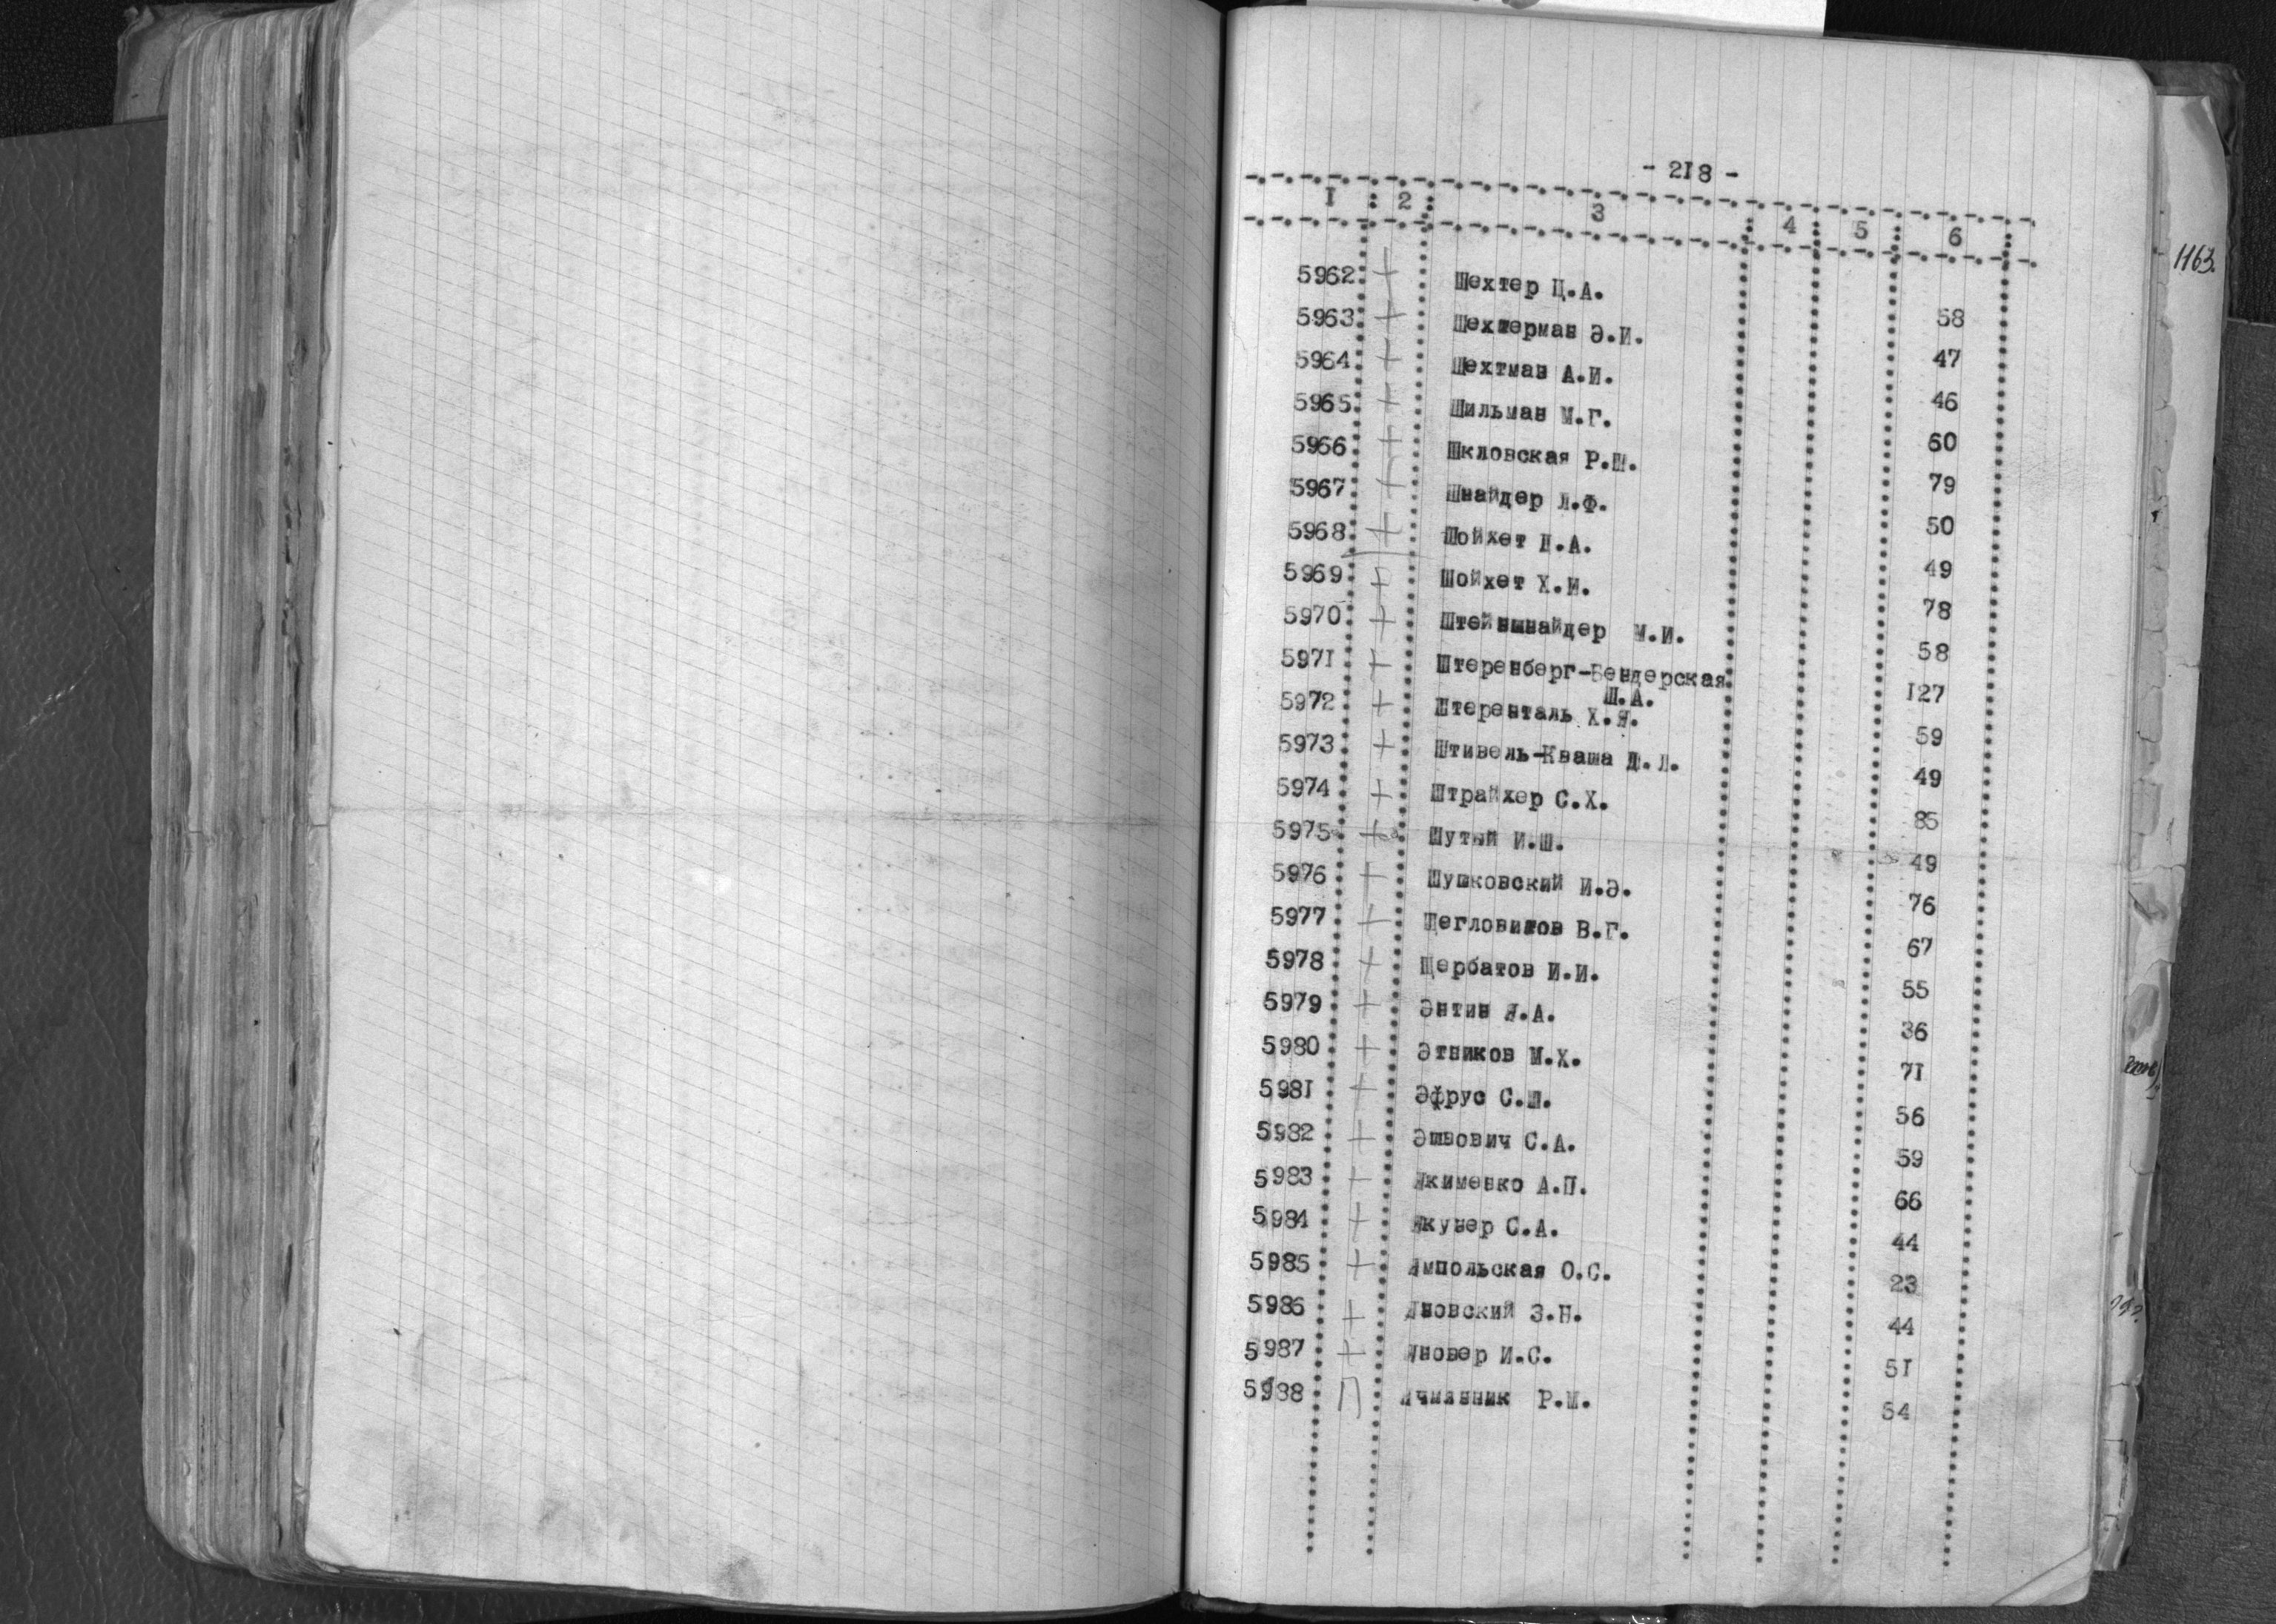 - 218 -
1 2 3 4 5 6
1163.
5962 + Шехтер Ц.А. 58
5963 + Шехтерман Э.И. 47
5964 + Шехтман А.И. 46
5965 + Шильман М.Г. 60
5966 + Шкловская Р.Ш. 79
5967 + Шнайдер Л.Ф. 50
5968 + Шойхет Ц.А. 49
5969 + Шойхет Х.И. 78
5970 + Штейншнайдер М.И. 58
5971 + Штеренберг-Бендерская 127
Ш.А.
5972 + Штеренталь Х.Я. 59
5973 + Штивель-Кваша Д.Л. 49
5974 + Штрайхер С.Х. 85
5975 + Шутый И.Ш. 49
5976 + Шушковский И.Э. 76
5977 + Щегловитов В.Г. 67
5978 + Щербатов И.И. 55
5979 + Энтин Я.А. 36
5980 + Этников М.Х. 71
5981 + Эфрус С.Ш. 56
5982 + Эшвович С.А. 59
5983 + Якименко А.П. 66
5984 + Якунер С.А. 44
5985 + Ямпольская О.С. 23
5986 + Яновский З.Н. 44
5987 + Яновер И.С. 51
5988 П Ячманник Р.М. 54